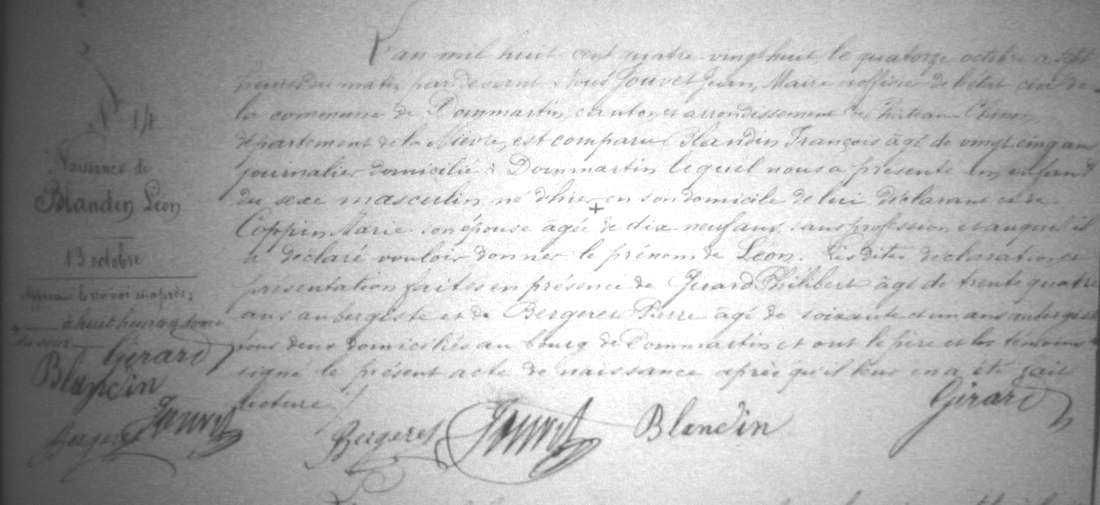 L'an mil huit cent quatre vingt huit, le quatorze octobre a sept
heures du matin par devant Nous Jouvet Jean, Maire officier de l'etat civil de
la commune de Dommartin, canton et arrondissement de Château Chinon,
département de la Nièvre, est comparu Blandin François âgé de vingt cinq ans
journalier domicilié à Dommartin lequel nous a présenté un enfant
du sexe masculin né d'hier en son domicile de lui déclarant et de
Coppin Marie son épouse âgée de dix neuf ans, sans profession et auquel il
a déclaré vouloir donner le prénom de Léon. Les dites déclaration et
présentation faites en présence de Girard Philibert âgé de trente quatre
ans aubergiste et de Bergeret Pierre âgé de soixante et un ans aubergiste
tous deux domiciliés au bourg de Dommartin et ont le père et les témoins
signé le présent acte de naissance après qu'il leur en a été fait
lecture
Bergeret Jouvet Blandin Girard
N° 14
Naissance de
Blandin Léon
13 octobre
Approuvé le renvoi ci-après;
à huit heures
du soir
Girard
Blandin
Bergeret Jouvet